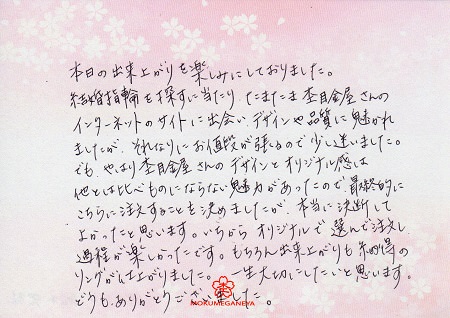 本日の出来上がりを楽しみにしておりました。
結婚指輪を探すに当たり、たまたま杢目金屋さんの
インターネットのサイトに出会い、デザインや品質に魅かれ
ましたが、それなりにお値段が張るので少し迷いました。
でも、やはり杢目金屋さんのデザインとオリジナル感は
他とは比べものにならない魅力があったので最終的に
こちらに注文することを決めましたが、本当に決断して
よかったと思います。いちからオリジナルで選んで注文し
過程が楽しかったです。もちろん出来上がりも納得の
リングが仕上がりました。一生大切にしたいと思います。
どうもありがとうございました。
MOKUMEGANEYA